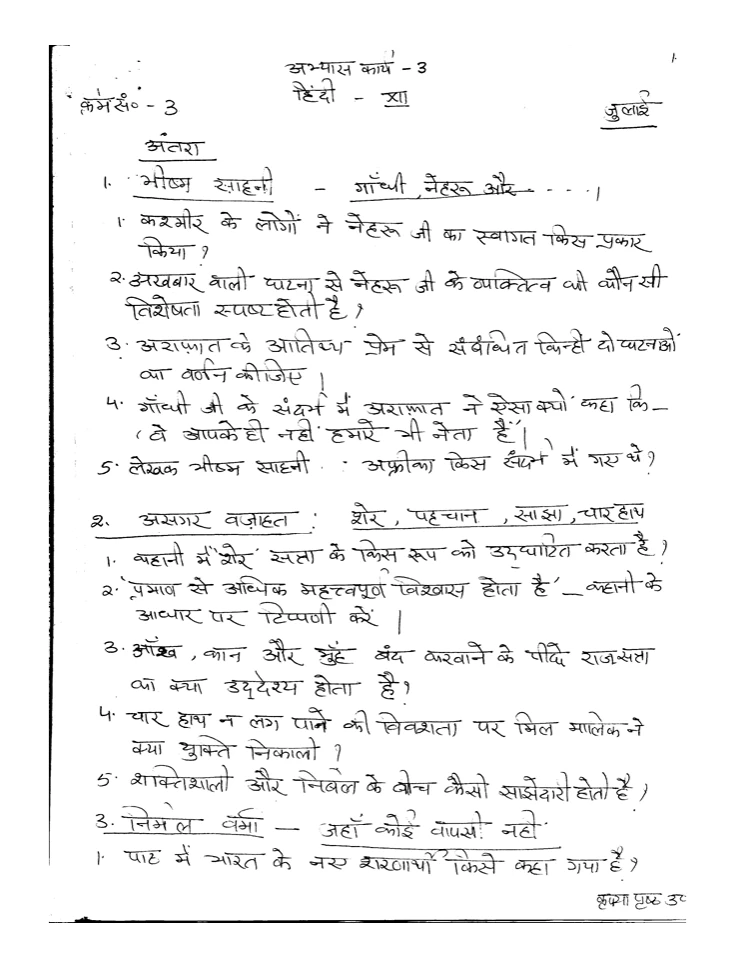 1.
अभ्यास कार्य - 3
हिंदी - XII
क्रम सं० - 3
जुलाई
अंतरा
1. भीष्म साहनी - गाँधी, नेहरू और - - - - ।
1. कश्मीर के लोगों ने नेहरू जी का स्वागत किस प्रकार
किया ?
२. अखबार वाली घटना से नेहरू जी के व्यक्तित्व की कौन सी
विशेषता स्पष्ट होती है ?
3. अराफ़ात के आतिथ्य प्रेम से संबंधित किन्हीं दो घटनाओं
का वर्णन कीजिए ।
4. गाँधी जी के संदर्भ में अराफ़ात ने ऐसा क्यों कहा कि _
'वे आपके ही नहीं हमारे भी नेता हैं' ।
5. लेखक भीष्म साहनी अफ्रीका किस संदर्भ में गए थे ?
२. असगर वज़ाहत : शेर, पहचान, साझा, चार हाथ
1. कहानी में 'शेर' सत्ता के किस रूप को उद्घाटित करता है ?
२. 'प्रमाण से अधिक महत्त्वपूर्ण विश्वास होता है' _ कहानी के
आधार पर टिप्पणी करें ।
3. आँख, कान और मुँह बंद करवाने के पीछे राजसत्ता
का क्या उद्देश्य होता है ?
4. चार हाथ न लग पाने की विवशता पर मिल मालिक ने
क्या युक्ति निकाली ?
5. शक्तिशाली और निर्बल के बीच कैसी साझेदारी होती है ?
3. निर्मल वर्मा — जहाँ कोई वापसी नहीं
1. पाठ में भारत के नए शरणार्थी किसे कहा गया है ?
कृपया पृष्ठ